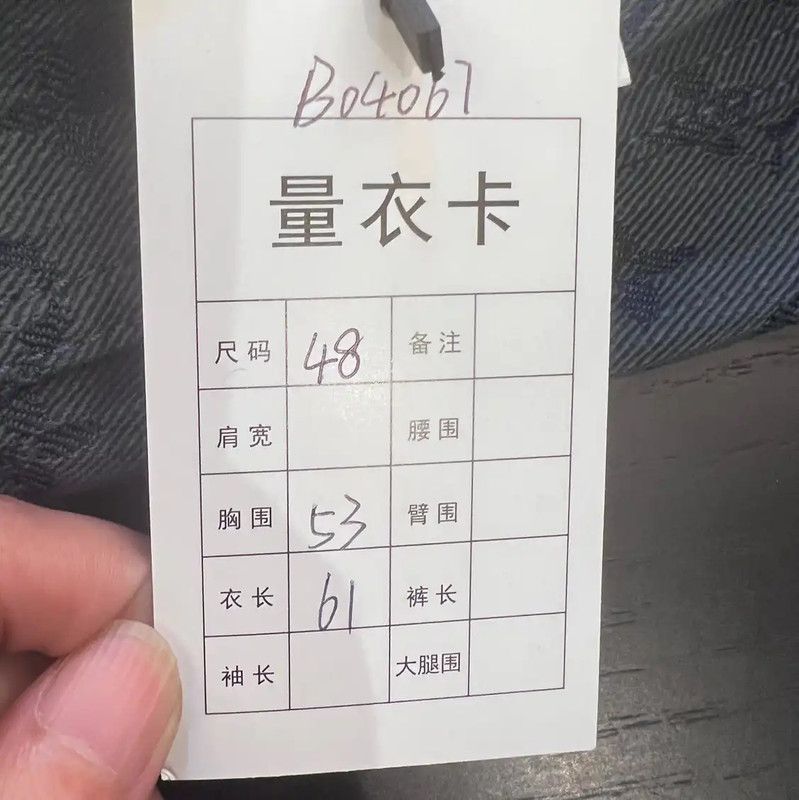 B04067
量衣卡
尺码 48 备注
肩宽 腰围
胸围 53 臂围
衣长 61 裤长
袖长 大腿围